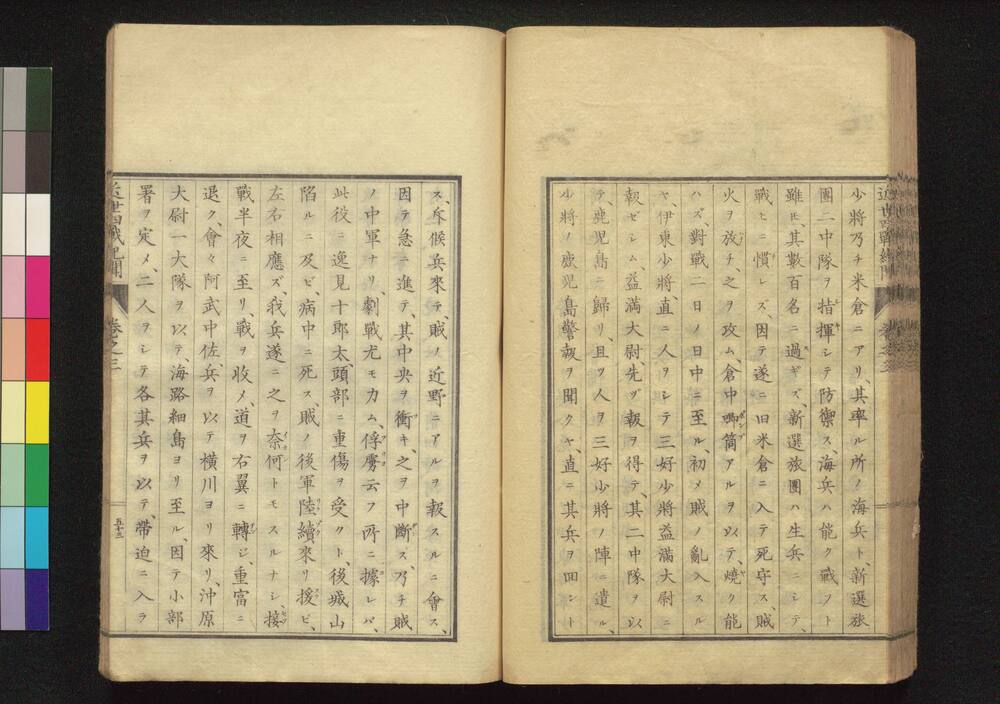 少將乃チ米倉ニアリ、其率ル所ノ海兵ト、新選旅
團二中隊ヲ指揮シテ防禦ス、海兵ハ能ク戰フト
雖ヒ、其數百名ニ過ギズ、新選旅團ハ生兵ニシテ、
戰ヒニ慣レズ、因テ遂ニ旧米倉ニ入テ死守ス、賊
火ヲ放チ、之ヲ攻ム、倉中喞筒アルヲ以テ、燒ク能
ハズ、對戰二日ノ日中ニ至ル、初メ賊ノ亂入スル
ヤ、伊東少將、直ニ人ヲシテ三好少將益滿大尉ニ
報ゼシム、益滿大尉、先ヅ報ヲ得テ、其二中隊ヲ以
テ、鹿児島ニ歸リ、且ツ人ヲ三好少將ノ陣ニ遣ル、
少將ノ鹿児島警報ヲ聞クヤ、直ニ其兵ヲ回ント
ス、斥候兵來テ、賊ノ近野ニアルヲ報スルニ會ス、
因テ急ニ進テ、其中央ヲ衝キ、之ヲ中斷ス、乃チ賊
ノ中軍ナリ、劇戰尤モカム、俘虜云フ所ニ據レバ、
此役ニ逸見十郎太、頭部ニ重傷ヲ受クト、後城山
陷ルニ及ビ、病中ニ死ス、賊ノ後軍陸續來リ援ヒ、
左右相應ズ、我兵遂ニ之ヲ奈何トモスルナシ、接
戰半夜ニ至リ、戰ヲ收メ、道ヲ右翼ニ轉ジ、重富ニ
退ク、會々阿武中佐、兵ヲ以テ橫川ヨリ來リ、沖原
大尉一大隊ヲ以テ、海路細島ヨリ至ル、因テ小部
署ヲ定メ、二人ヲシテ各其兵ヲ以テ、帶迫ニ入ラ
卷之三
五十三